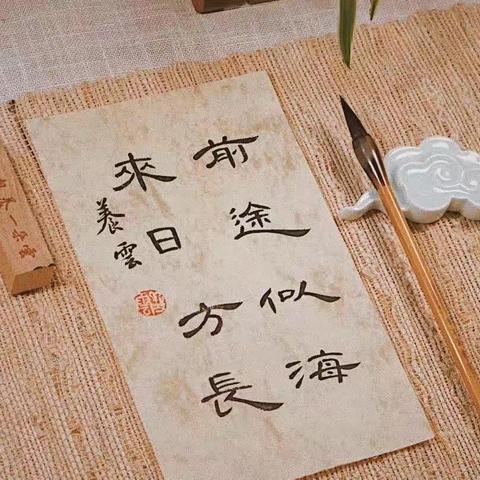 前途似海
來日方長
養雲